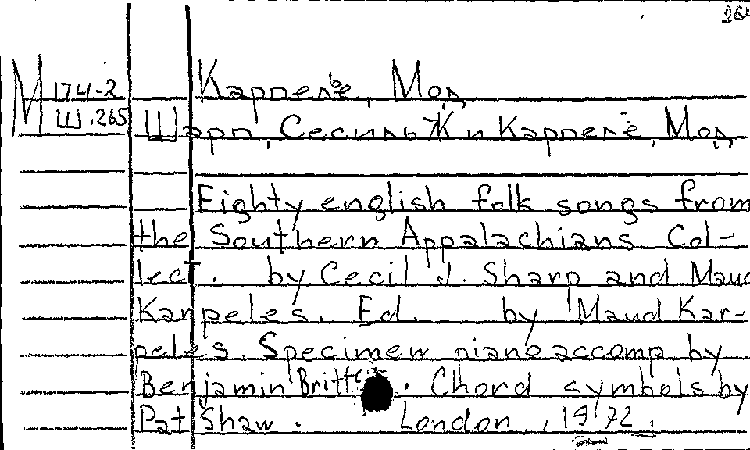 264
М 174-2 Карпелз, Мод
Ш.265 Шарп, Сесиль Ж и Карпелз, Мод
Eighty english folk songs from
the Southern Appalachians Col-
lect. by Cecil J. Sharp and Maud
Karpeles. Ed. by Maud Kar-
peles. Specimen piano accomp by
Benjamin Britt . Chord symbols by
Pat Shaw. London, 1972.